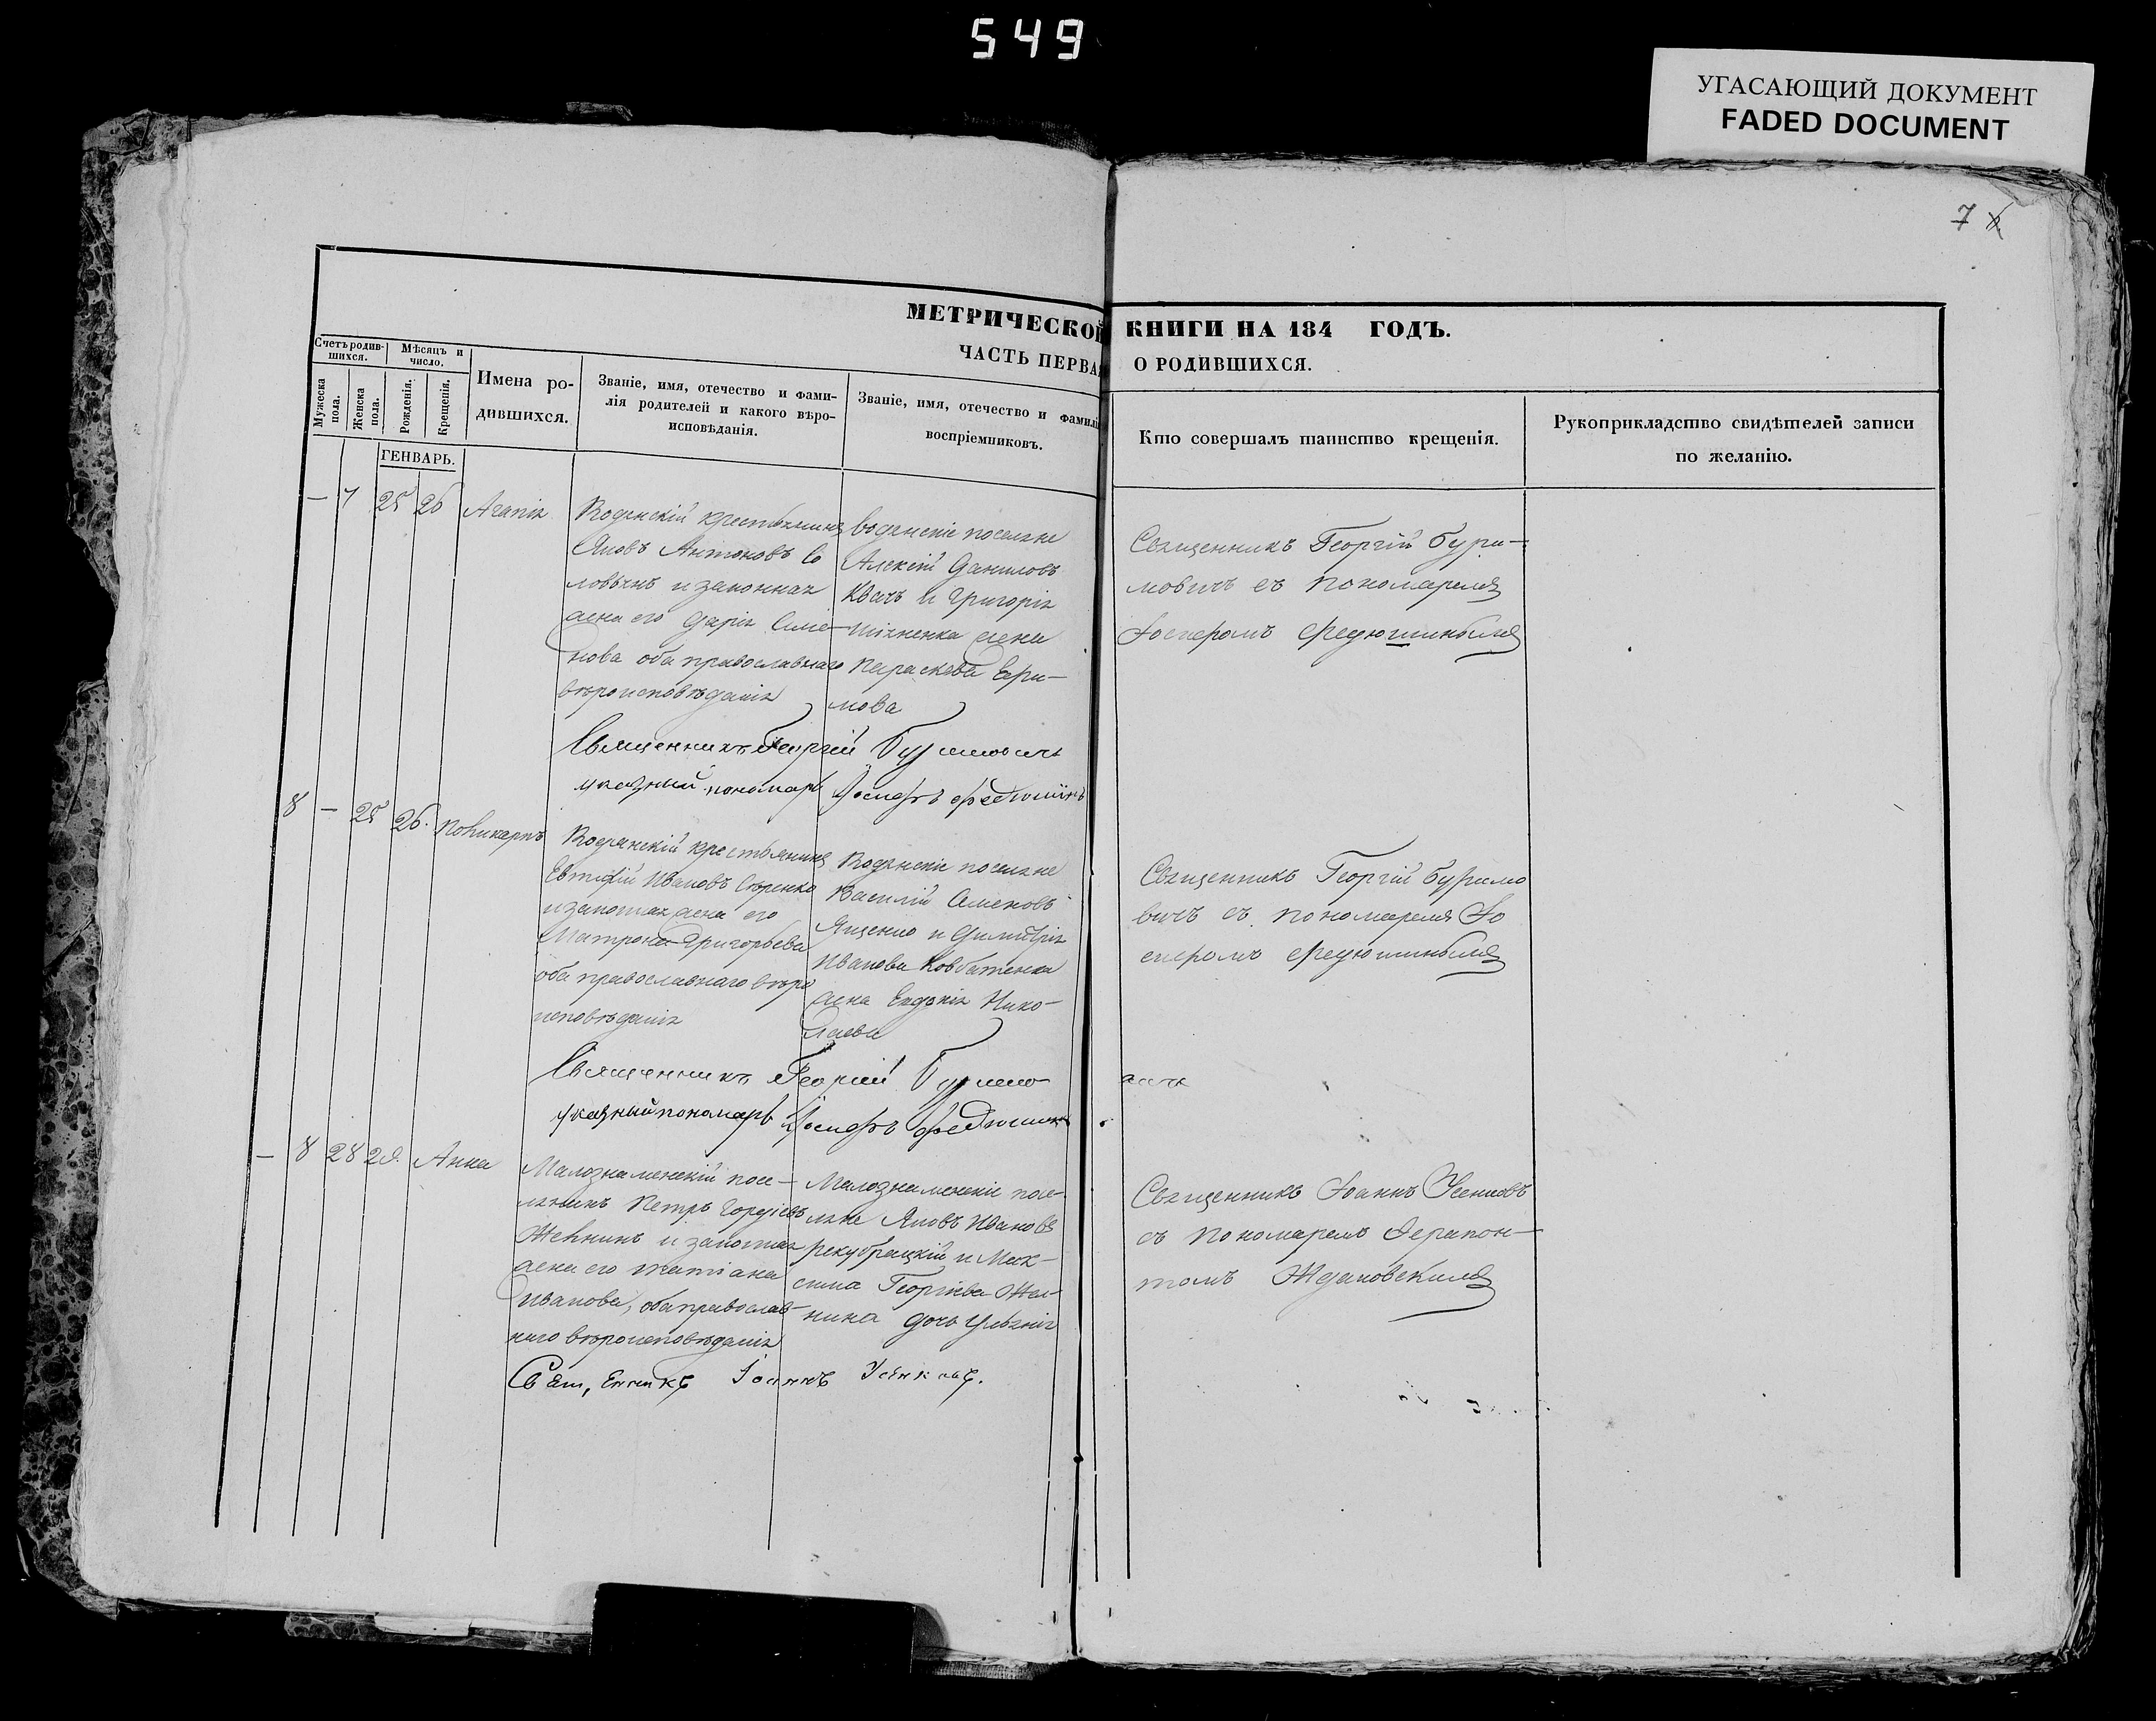 549
УГАСАЮЩИЙ ДОКУМЕНТ
FADED DOCUMENT
7
МЕТРИЧЕСКОЙ КНИГИ НА 184 ГОДЪ.
ЧАСТЬ ПЕРВАЯ О РОДИВШИХСЯ.
Счетъ родившихся.
Мѣсяцъ и число.
Мужеска пола.
Женска пола.
Рожденія.
Крещенія.
Имена родившихся.
Званіе, имя, отечество и фамилія родителей и какого вѣроисповѣданія.
Званіе, имя, отечество и фамилія воспріемниковъ.
Кто совершалъ таинство крещенія.
Рукоприкладство свидѣтелей записи по желанію.
ГЕНВАРЬ.
— 7 25 26 Агапія
Водянскій крестьянинъ
Яковъ Антоновъ Со
ловьянъ и законная
жена его Дарія Симе-
нова оба православнаго
вѣроисповѣданія
водянскіе поселяне
Алексій Даниловъ
Квачъ и Григорія
жена
Параскева Ефи-
мова
Священникъ Георгій Бури-
мовичъ съ пономаремъ
Іосифомъ Федюшинымъ
Священникъ Георгій Буримовичъ
указный пономарь Іосифъ Федюшинъ
8 — 25 26. Поликарпъ
Водянскій крестьянинъ
Евтифій Ивановъ
и законная жена его
Матрона Григорьева
оба православнаго вѣро
исповѣданія
Водянскіе поселяне
Василій Семеновъ
Ященко и Димитрія
Иванова
жена Евдокія Нико-
лаева
Священникъ Георгій Буримо
вичъ съ пономаремъ Іо
сифомъ Федюшинымъ
Священникъ Георгій Буримо вичъ
указный пономарь Іосифъ Федюшинъ
— 8 28 29. Анна
Малознаменскій посе-
лянинъ Петръ Гордіевъ
Желнинъ и законная
жена его Татіана
Иванова, оба православ-
наго вѣроисповѣданія
Малознаменскіе посе-
ляне Яковъ Ивановъ
и Мак-
сима Георгіева Жел-
нина дочь Ульянія
Священникъ Іоаннъ Усенковъ
съ пономаремъ Ферапон-
томъ Ждановскимъ
Священникъ Іоаннъ Усенковъ.